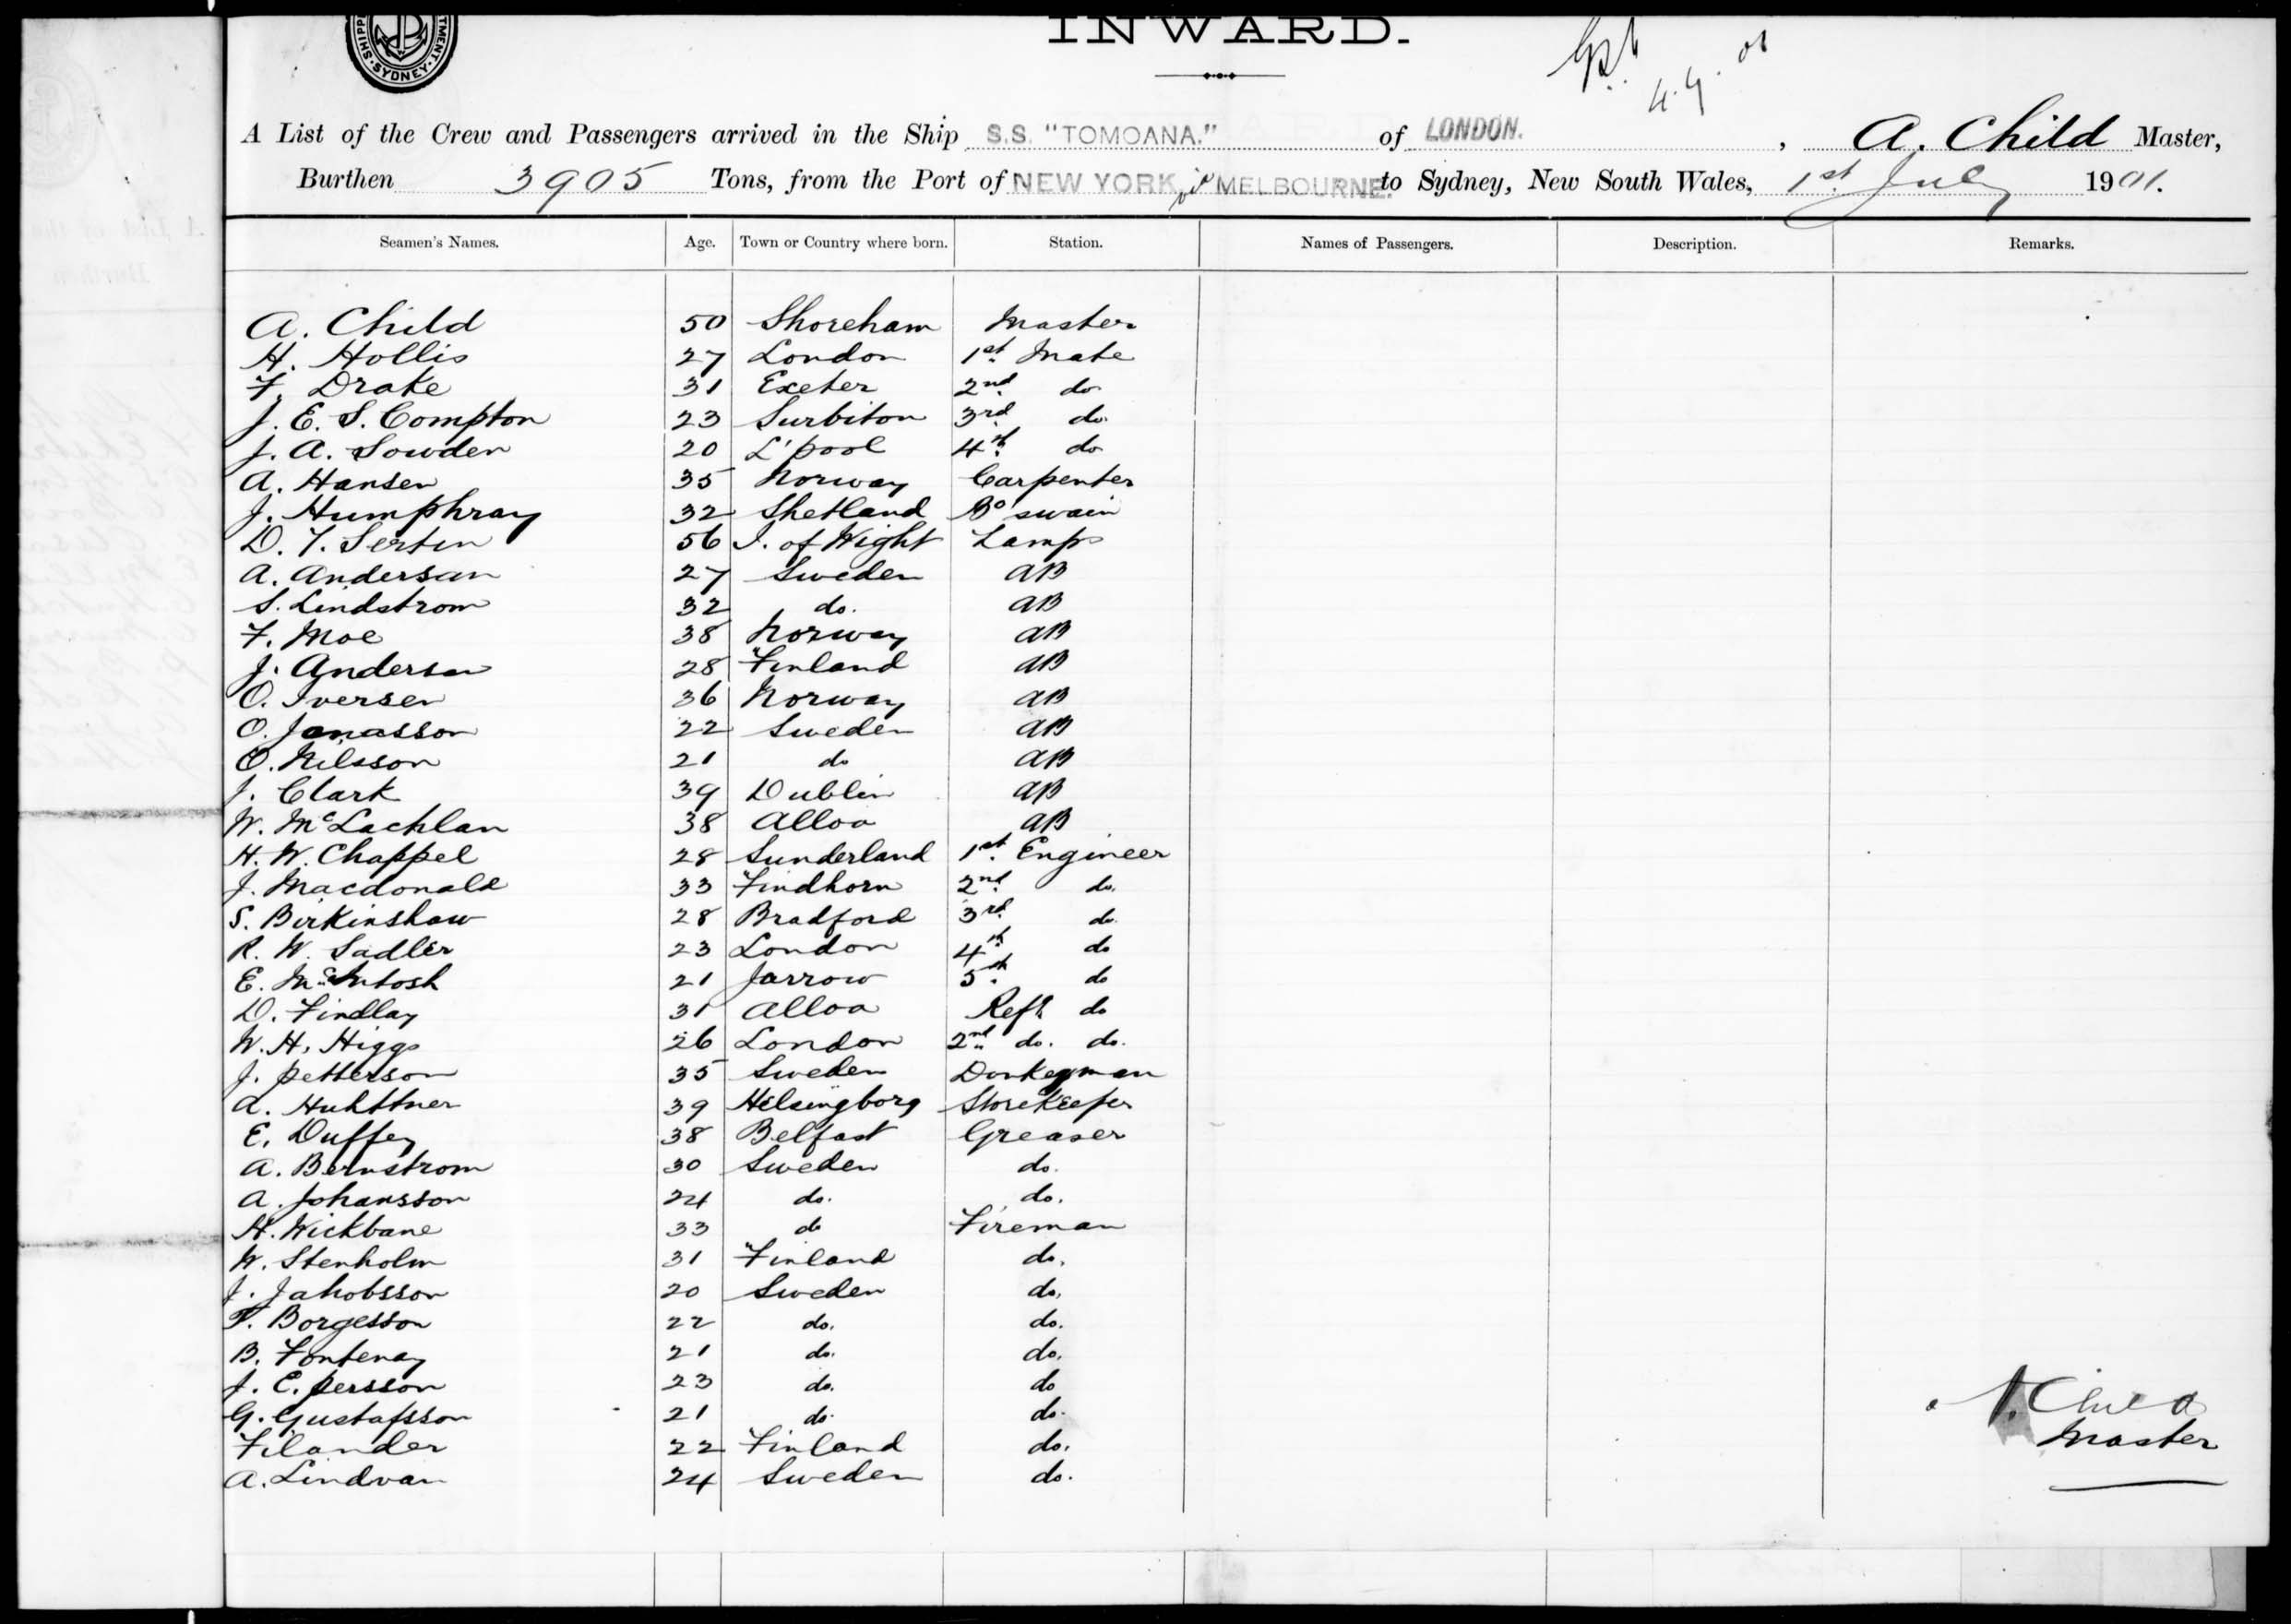 SHIPPING
TMENT.
SYDNEY.
INWARD.
A List of the Crew and Passengers arrived in the Ship S.S. "TOMOANA." of LONDON. , A. Child Master,
Burthen 3905 Tons, from the Port of NEW YORK MELBOURNE. to Sydney, New South Wales, 1st July 1901.
Seamen's Names. Age. Town or Country where born. Station. Names of Passengers. Description. Remarks.
A. Child 50 Shoreham Master
H. Hollis 27 London 1st Mate
F. Drake 31 Exeter 2nd do
J. E. S. Compton 23 Surbiton 3rd do.
J. A. Sowden 20 L'pool 4th do
A. Hansen 35 Norway Carpenter
J. Humphray 32 Shetland Bo swain
D. T. Serten 56 I. of Wight Lamps
A. Andersan 27 Sweden AB
S. Lindstrom 32 do. AB
F. Moe 38 Norway AB
J. Anderson 28 Finland AB
O. Iversen 36 Norway AB
O. Jonasson 22 Sweden AB
O. Nilsson 21 do AB
J. Clark 39 Dublin AB
W. McLachlan 38 Alloa AB
H. W. Chappel 28 Sunderland 1st Engineer
J. Macdonald 33 Findhorn 2nd do.
S. Birkinshaw 28 Bradford 3rd do.
R. W. Sadler 23 London 4th do
E. McIntosh 21 Jarrow 5th do
D. Findlay 31 Alloa Refr. do
W. H. Higgs 26 London 2nd do. do.
J. Petterson 35 Sweden Donkeyman
A. Huhttner 39 Helsingborg Storekeeper
E. Duffey 38 Belfast Greaser
A. Bernstrom 30 Sweden do.
A. Johansson 24 do. do.
H. Wickbane 33 do Fireman
W. Stenholm 31 Finland do.
J. Jahobsson 20 Sweden do.
F. Borgesson 22 do. do.
B. Fontenay 21 do. do.
J. E. Persson 23 do. do
G. Gustafsson 21 do. do.
Filander 22 Finland do.
A. Lindvan 24 Sweden do.
A. Child
Master